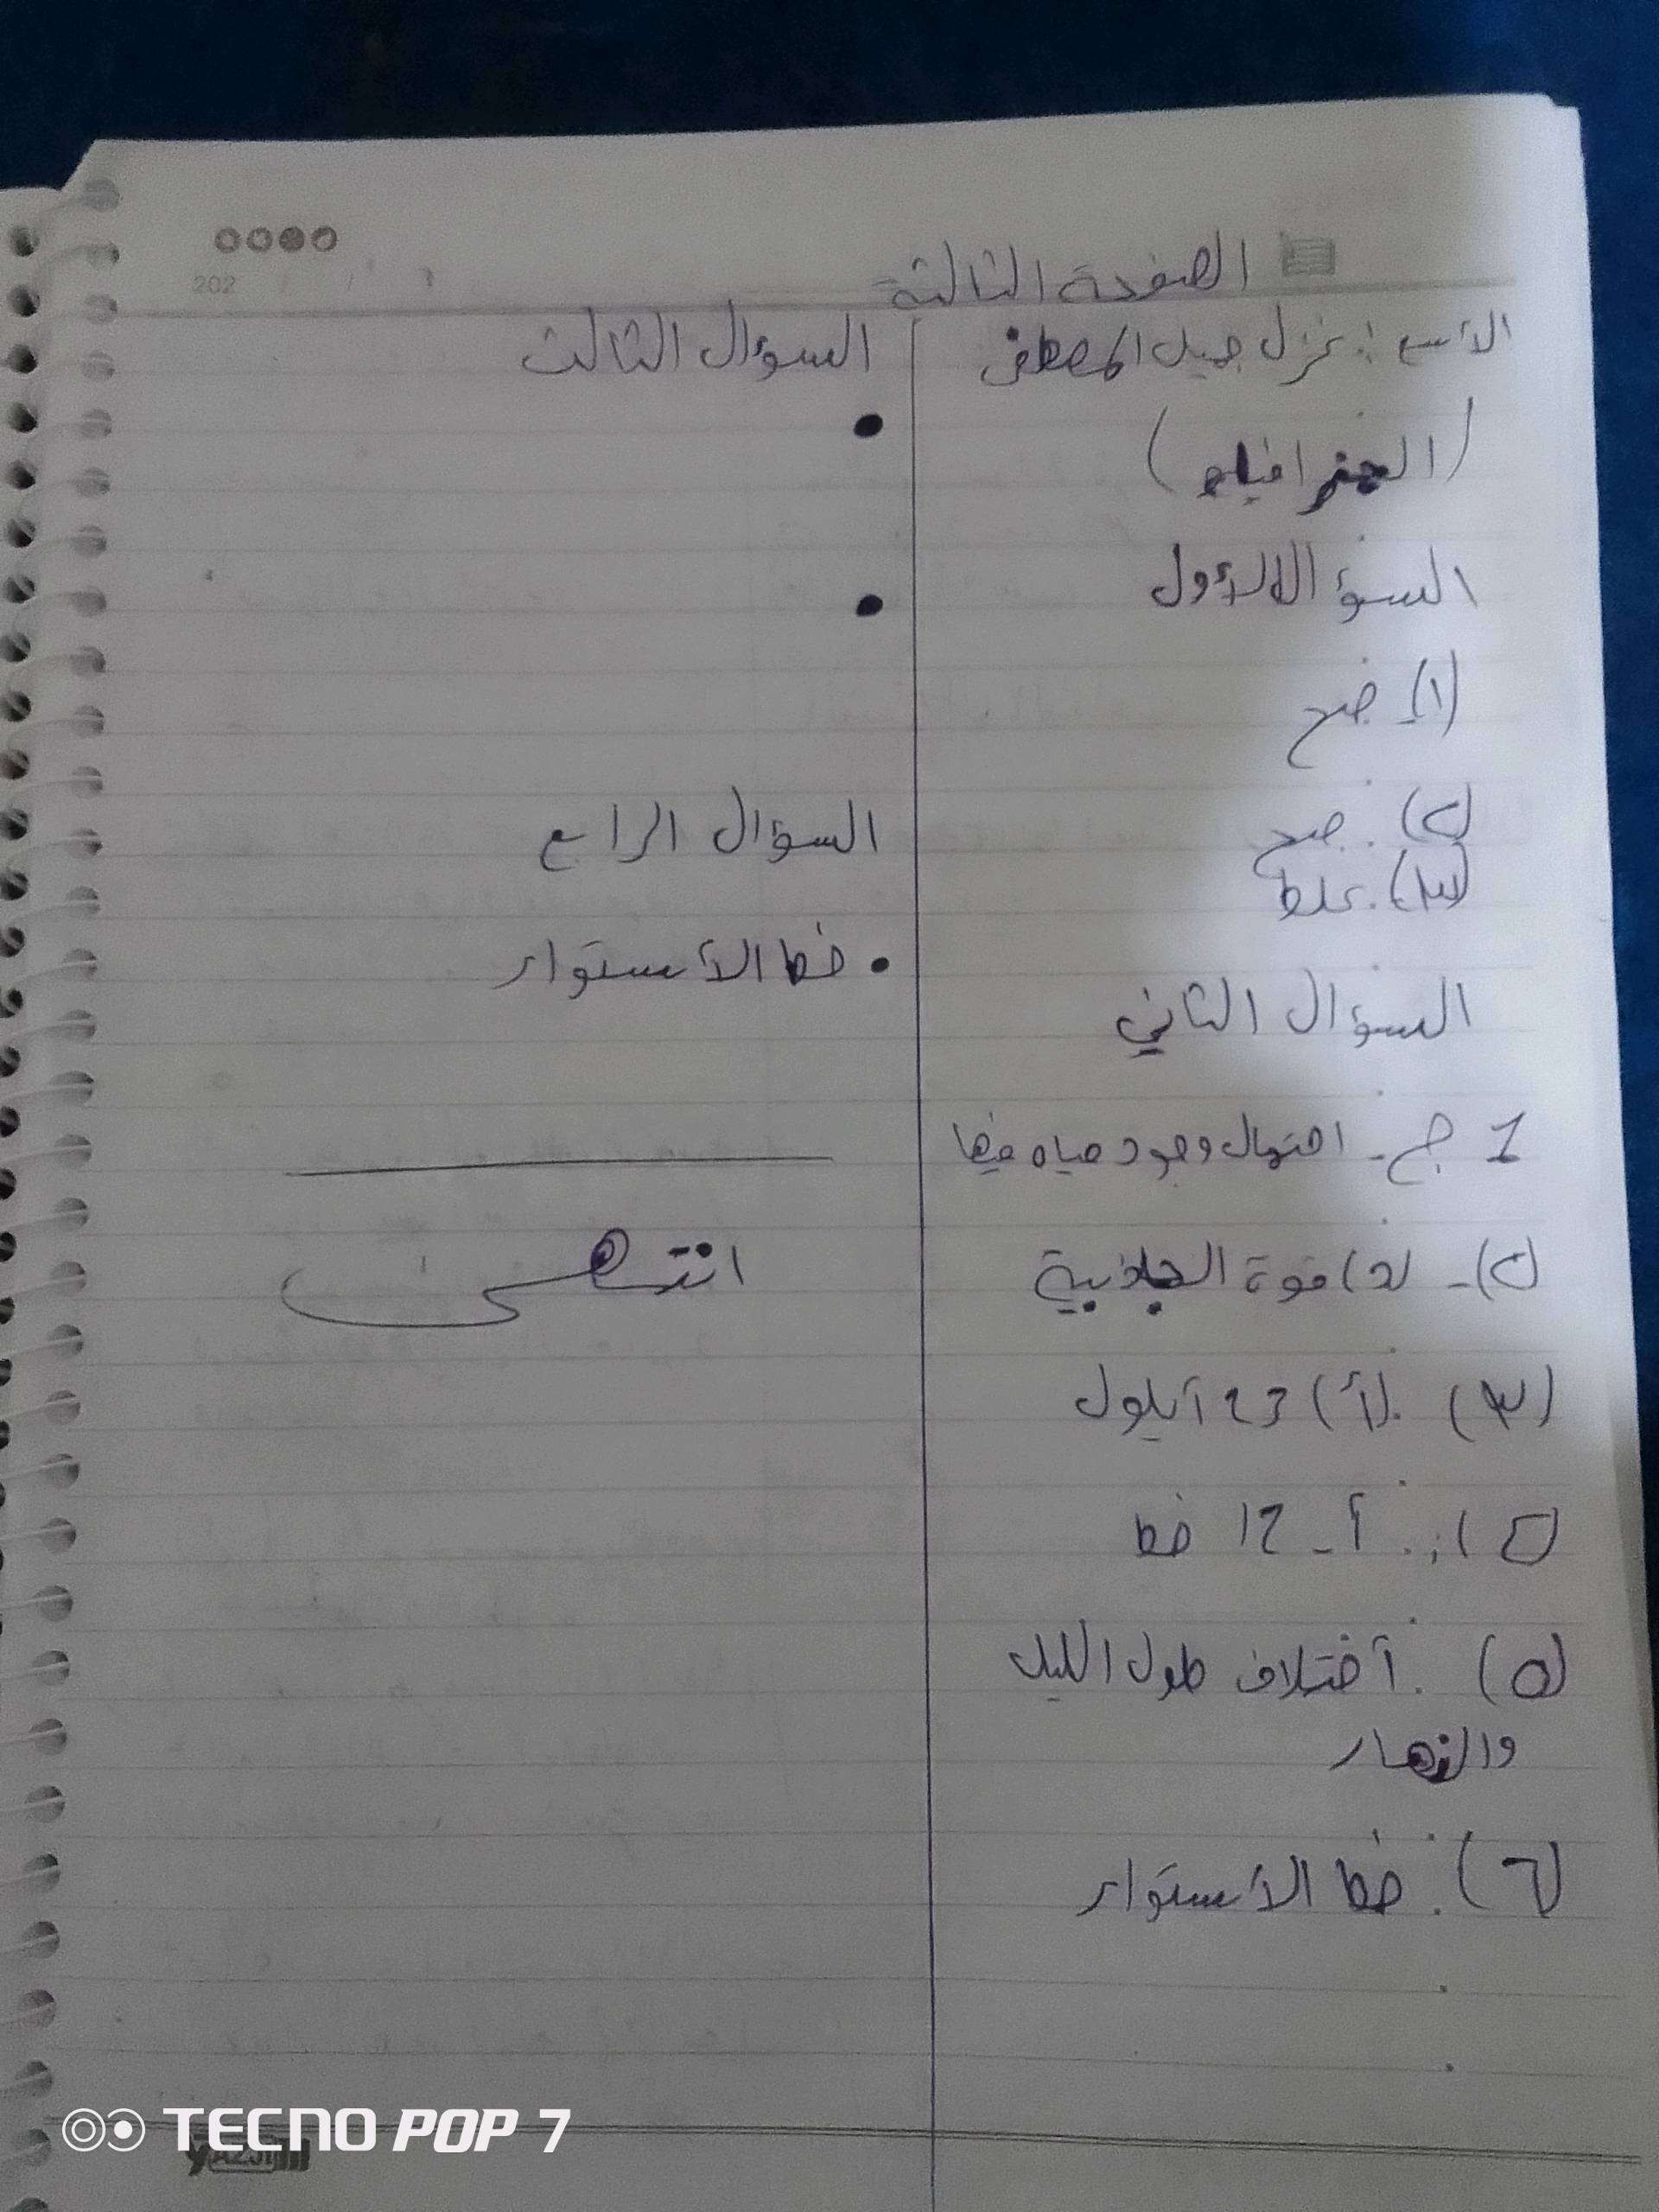 الصفحة الثالثة
202 / /
الأسم : غزل جميل المصطفى
(الجغرافيا)
السؤ الالأول
(١)ـ صح
(٢). صح
(٣). غلط
السؤال الثاني
1 ج ـ احتمال وجود مياه فيها
(٢)ـ د) قوة الجاذبية
(٣) .(أ) ٢3 أيلول
أ ـ ١٢ خط
(٥) . أختلاف طول الليل
والنهار
(٦) . خط الأستواء
السؤال الثالث
•
•
السؤال الرابع
• خط الأستواء
انتهى
TECNO POP 7